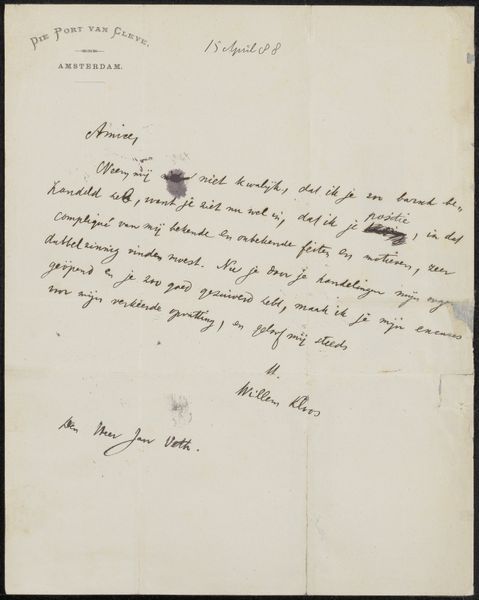 DIE PORT VAN CLEVE.
AMSTERDAM.
15 April 88
Amice,
Neem mij niet kwalijk, dat ik je zoo barsch be„
handeld heb, want je ziet nu wel in, dat ik je positie, in dat
compliqué van mij bekende en onbekende feiten en motieven, zeer
dubbelzinnig vinden moest. Nu je door je handelingen mijn oogen
geöpend en je zoo goed gezuiverd hebt, maak ik je mijn excuses
voor mijn verkeerde opvatting, en geloof mij steeds
Willem Kloos
Den Heer Jan Veth.